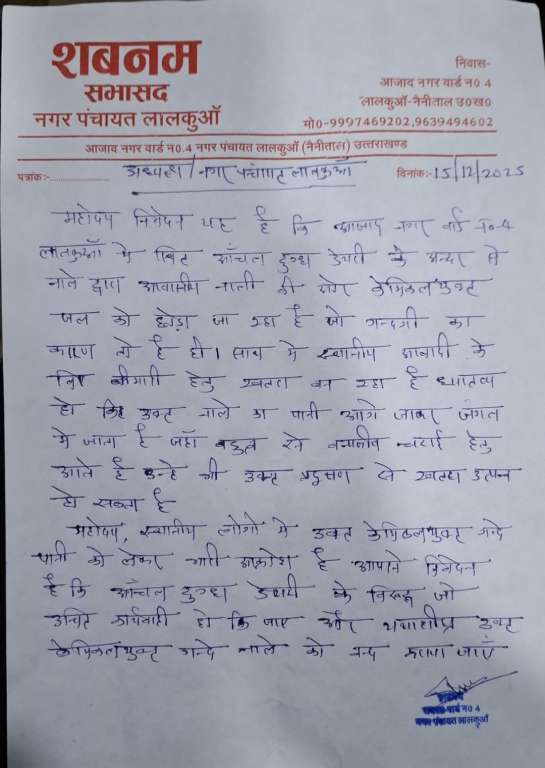 शबनम
सभासद
नगर पंचायत लालकुऑं
निवास-
आजाद नगर वार्ड न0 4
लालकुऑं-नैनीताल उ0ख0
मो0-9997469202,9639494602
आजाद नगर वार्ड न0.4 नगर पंचायत लालकुऑं (नैनीताल) उत्तराखण्ड
पत्रांक:-
अध्यक्ष / नगर पंचायत लालकुऑं
दिनांक:- 15/12/2025
महोदय निवेदन यह है कि आजाद नगर वार्ड न0-4
लालकुऑं में स्थित ऑंचल दुग्ध डेयरी के अन्दर से
नाले द्वारा आवासीय नाली की ओर केमिकलयुक्त
जल को छोड़ा जा रहा है जो गन्दगी का
कारण तो है ही। साथ में स्थानीय आबादी के
लिए बीमारी हेतु खतरा बन रहा है ध्यातव्य
हो कि उक्त नाले का पानी आगे जाकर जंगल
में जाता है जहाँ बहुत से वन्यजीव चराई हेतु
आते है उन्हे भी उक्त प्रदूषण से खतरा उत्पन्न
हो सकता है
महोदय, स्थानीय लोगो मे उक्त केमिकलयुक्त गन्दे
पानी को लेकर भारी आक्रोश है आपसे निवेदन
है कि ऑंचल दुग्ध डेयरी के विरूद्ध जो
उचित कार्यवाही हो कि जाए और यथाशीघ्र उक्त
केमिकलयुक्त गन्दे नाले को बन्द कराया जाएँ
शबनम
सभासद वार्ड न0 4
नगर पंचायत लालकुऑं